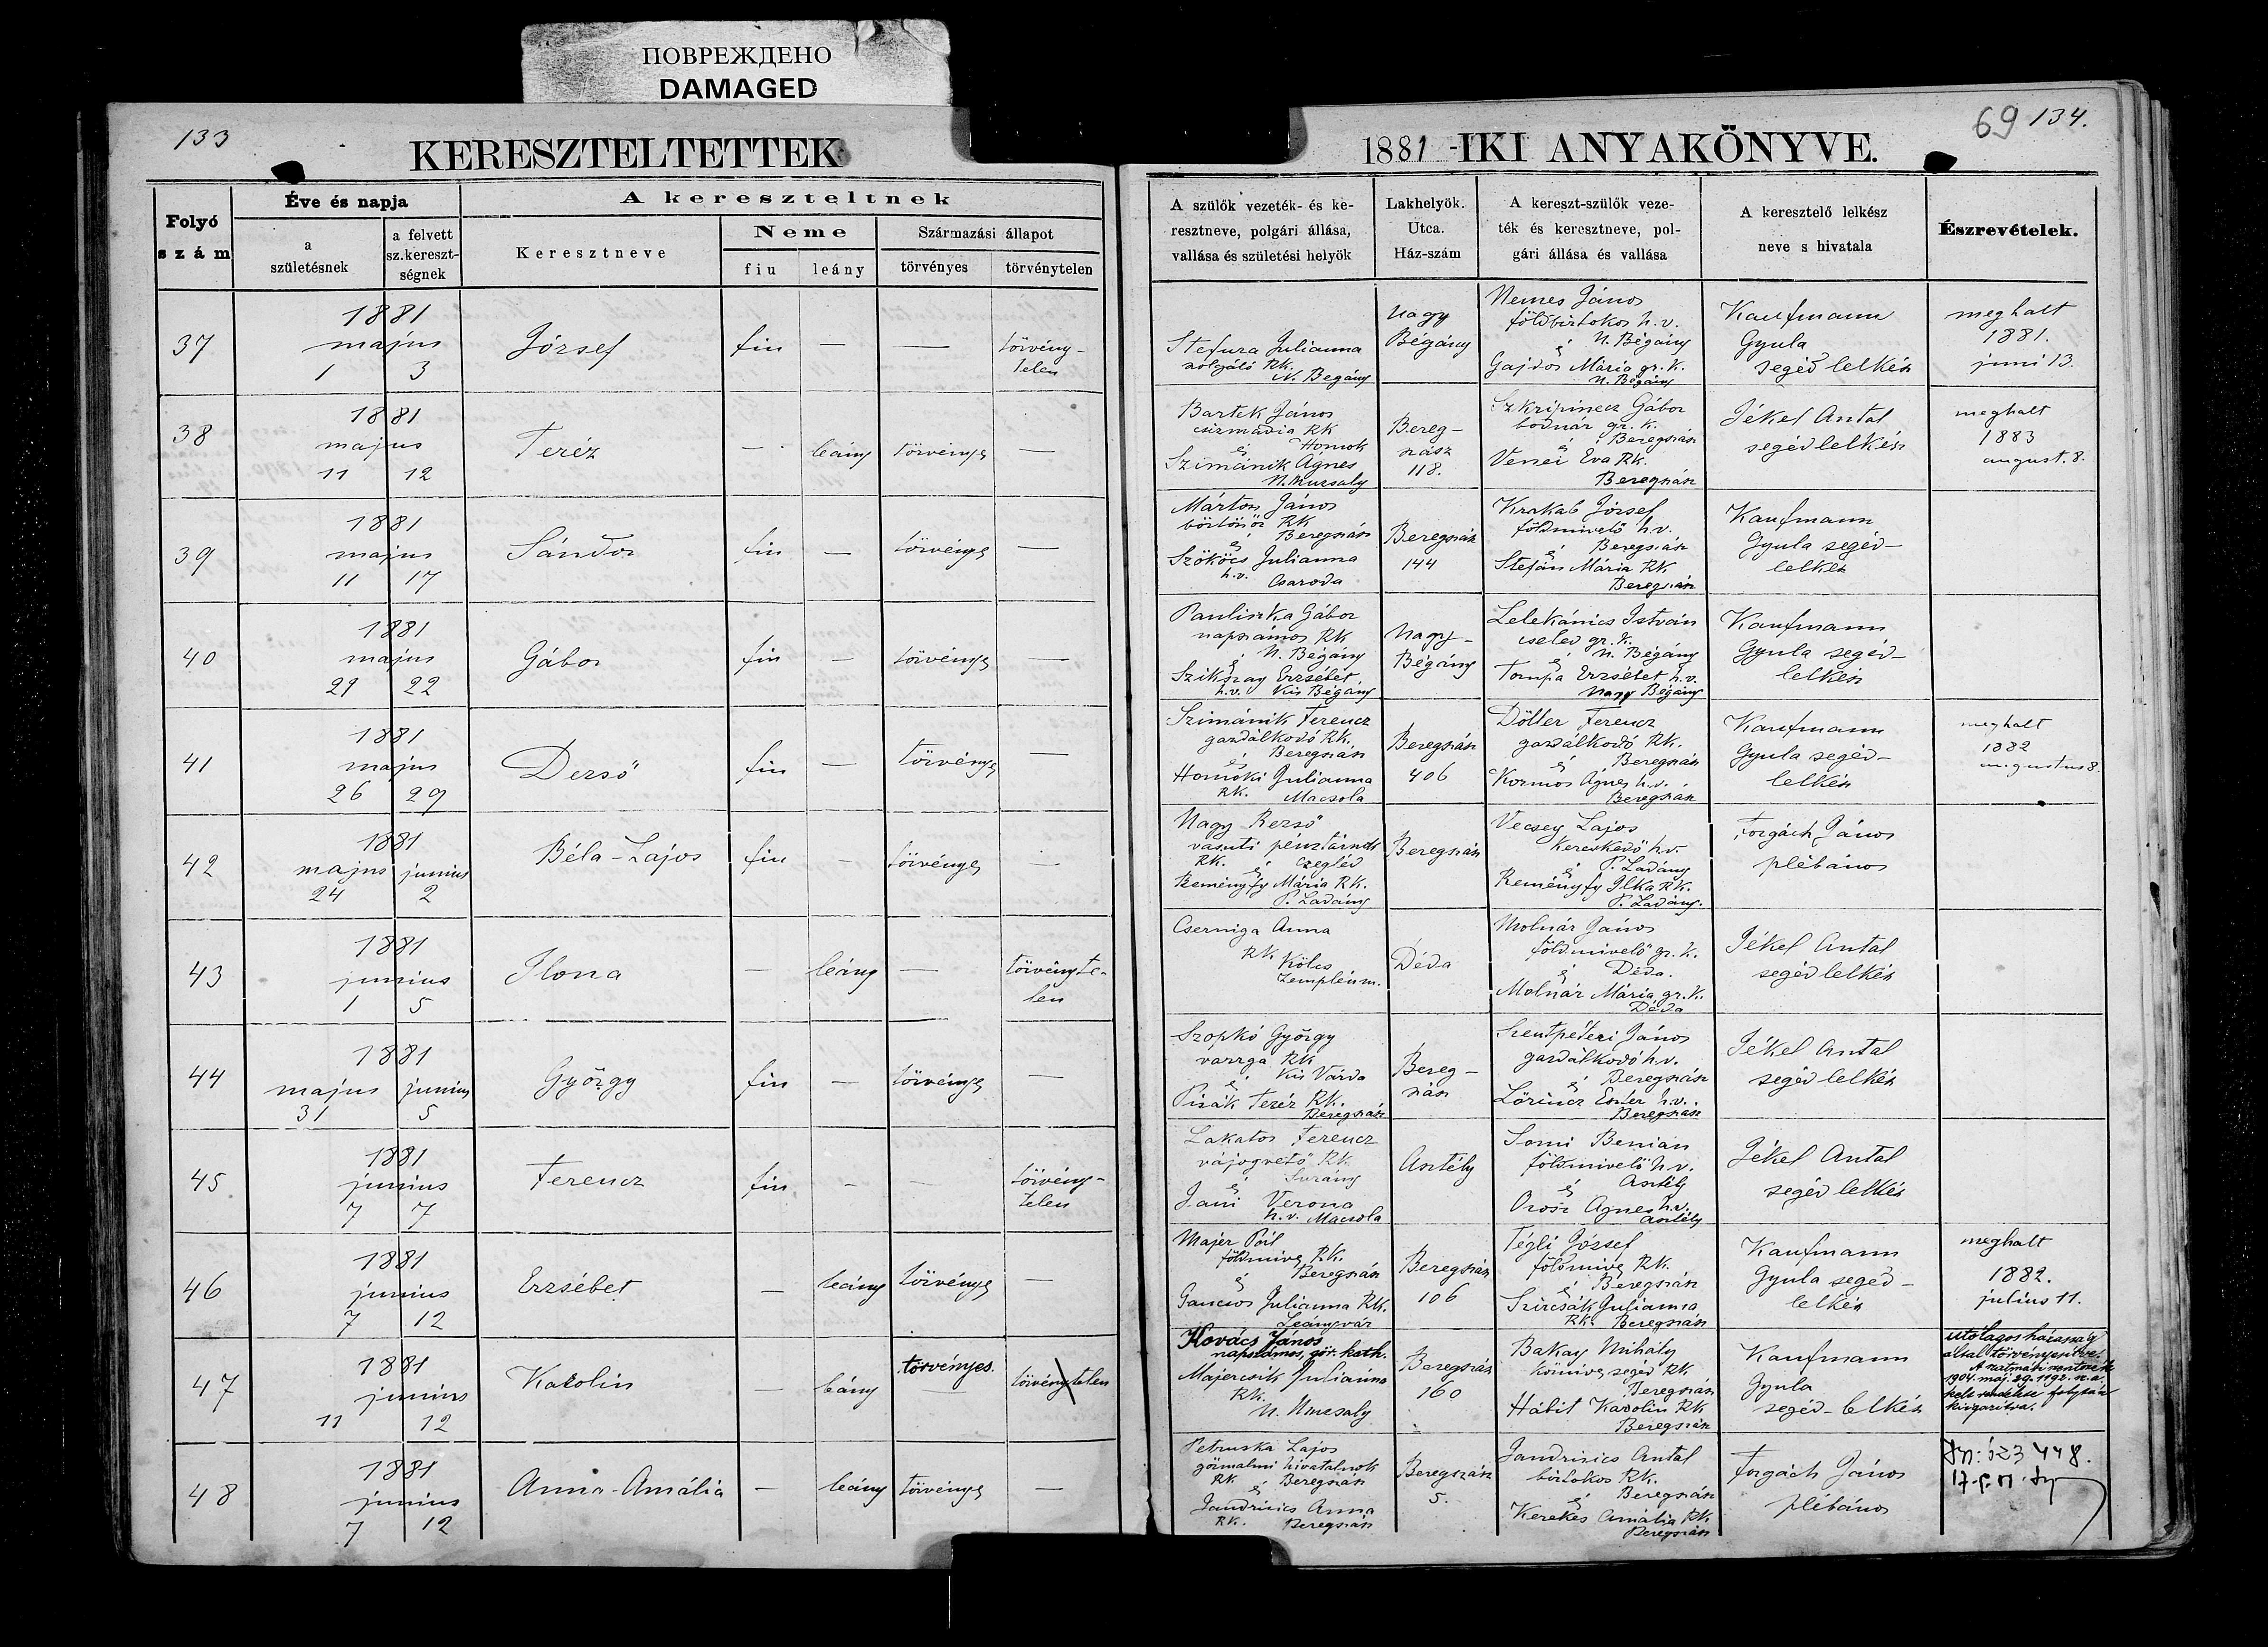 ПОВРЕЖДЕНО
DAMAGED
133
KERESZTELTETTEK
69 134.
1881 -IKI ANYAKÖNYVE.
Folyó szám
Éve és napja
a születésnek
a felvett sz.kereszt-ségnek
A kereszteltnek
Keresztneve
Neme
fiu
leány
Származási állapot
törvényes
törvénytelen
A szülők vezeték- és ke-
resztneve, polgári állása,
vallása és születési helyök
Lakhelyök.
Utca.
Ház-szám
A kereszt-szülők veze-
ték és keresztneve, pol-
gári állása és vallása
A keresztelő lelkész
neve s hivatala
Észrevételek.
37
1881
majus
1 3
József
fiu — —
törvény-
telen
Stefura Julianna
szolgáló RK.
N. Begány
Nagy
Bégány
Nemes János
földbirtokos h.v.
N. Bégány
és
Gajdos Mária gr. K.
N. Bégány
Kaufmann
Gyula
segéd lelkész
meghalt
1881.
juni 13.
38
1881
majus
11 12
Teréz
— leány törvényes —
Bartek János
csizmadia RK
Homok
és
Szimánik Ágnes
N. Muzsaly
Bereg-
szász
118.
Szkripinecz Gábor
bodnár gr. K.
Beregszász
és
Eva RK.
Beregszász
Jékel Antal
segédlelkész
meghalt
1883
august. 8.
39
1881
majus
11 17
Sándor
fiu — törvényes —
Márton János
börtönőr RK
Beregszász
és
Szökőcs Julianna
h.v. Csaroda
Beregszász
144
Krakab József
földmivelő h.v.
Beregszász
és
Stefán Mária RK
Beregszász
Kaufmann
Gyula segéd-
lelkész
40
1881
majus
21 22
Gábor
fiu — törvényes —
Pauliszka Gábor
napszámos RK
N. Bégány
és
Szikszay Erzsébet
h.v. Kis Bégány
Nagy-
Bégány
Lelekánics István
cseled gr. K.
N. Bégány
és
Tompa Erzsébet h.v.
Nagy Bégány
Kaufmann
Gyula segéd-
lelkész
41
1881
majus
26 29
Dezső
fiu — törvényes —
Szimánik Ferencz
gazdálkodó RK.
Beregszász
és
Homoki Julianna
RK. Macsola
Beregszász
406
Döller Ferencz
gazdálkodó RK.
Beregszász
és
Kormos Ágnes h.v.
Beregszász
Kaufmann
Gyula segéd-
lelkész
meghalt
1882
augustus 8.
42
1881
majus junius
24 2
Béla-Lajos
fiu — törvényes —
Nagy Rezső
vasuti pénztárnok
RK. Czegléd
és
Reményfy Mária RK.
P. Ladány
Beregszász
Vecsey Lajos
kereskedő h.v.
P. Ladány
és
Reményfy Ilka RK.
P. Ladány.
Forgách János
plébános
43
1881
junius
1 5
Ilona
— leány —
törvényte-
len
Cserniga Anna
RK. Kölcs
Zemplén m.
Déda
Molnár János
földmivelő gr. K.
Déda.
és
Molnár Mária gr. K.
Déda
Jékel Antal
segéd lelkész
44
1881
majus junius
31 5
György
fiu — törvényes —
Szopkó György
varrga RK
Kis Várda
és
Teréz RK.
Beregszász
Bereg-
szász
Szentpéteri János
gazdálkodó h.v.
Beregszász
és
Lőrincz Eszter h.v.
Beregszász
Jékel Antal
segéd lelkész
45
1881
junius
7 7
Ferencz
fiu — —
törvény-
telen
Lakatos Ferencz
vájogvető RK
Surány
és
Jani Verona
h.v. Macsola
Asztély
Somi Benian
földmivelő h.v.
Asztély
és
Orosz Agnes h.v.
Asztély
Jékel Antal
segéd lelkész
46
1881
junius
7 12
Erzsébet
— leány törvényes —
Majer Pál
földmives RK.
Beregszász
és
Gancsos Julianna RK.
Leányvár
Beregszász
106
Tégli József
földmives RK.
Beregszász
és
Szircsák Julianna
RK. Beregszász
Kaufmann
Gyula segéd-
lelkész
meghalt
1882.
julius 11.
47
1881
junius
11 12
Karolin
— leány törvényes. törvénytelen
Kovács János
napszámos, gör. kath.
Majercsik Julianna
RK.
N. Muzsaly
Beregszász
160
Bakay Mihály
kőmives segéd RK
Beregszász
Hábit Karolin RK
Beregszász
Kaufmann
Gyula
segéd-lelkész
utólagos házasság
által törvényesítve.
A szatmári
1904. máj. 29. 1192. sz. a.
kelt rendelete folytán
kiigazitva.
48
1881
junius
7 12
Anna-Amália
— leány törvényes —
Petruska Lajos
gőzmalmi hivatalnok
RK. Beregszász
és
Jandrisics Anna
RK. Beregszász
Beregszász
5.
Jandrisics Antal
birtokos RK.
Beregszász
és
Kerekes Amália RK
Beregszász
Forgách János
plébános